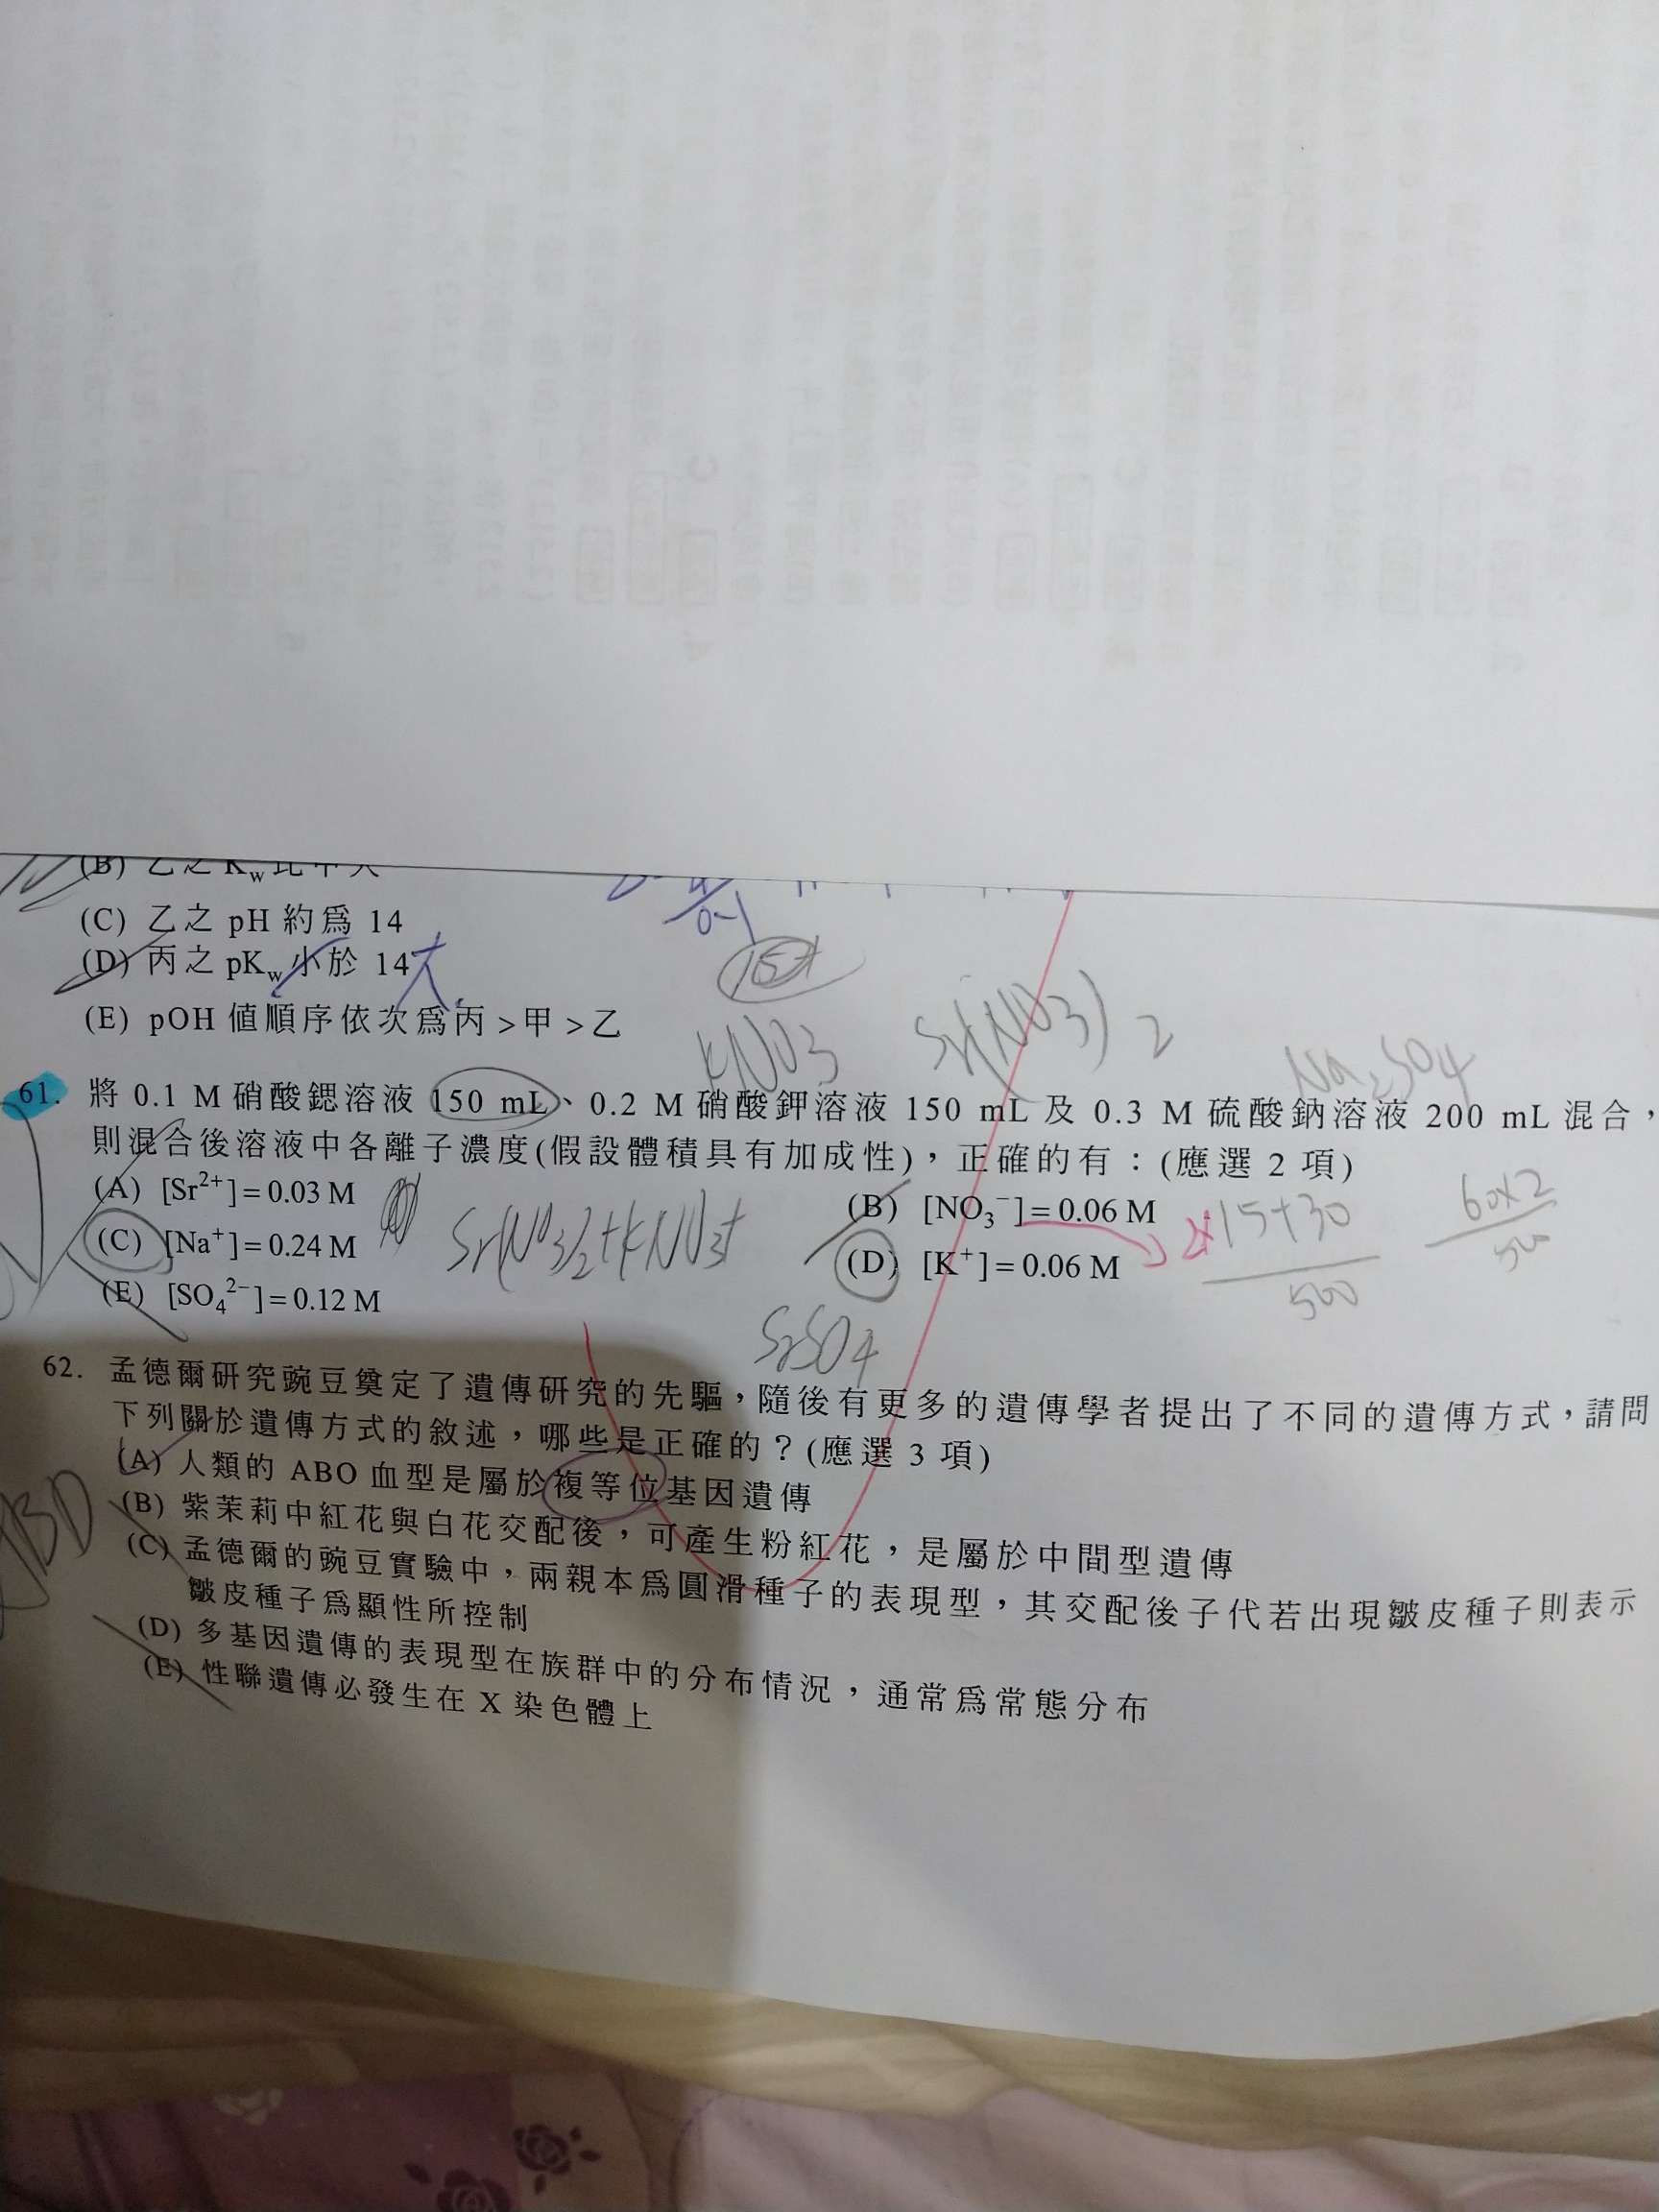 (B) 乙之 Kw 比甲大
(C) 乙之 pH 約為 14
(D) 丙之 pKw 小於 14 大
(E) pOH 值順序依次為丙 > 甲 > 乙
KNO3 Sr(NO3)2 Na2SO4
61. 將 0.1 M 硝酸鍶溶液 150 mL、0.2 M 硝酸鉀溶液 150 mL 及 0.3 M 硫酸鈉溶液 200 mL 混合，
則混合後溶液中各離子濃度(假設體積具有加成性)，正確的有：(應選 2 項)
(A) [Sr²⁺] = 0.03 M
(B) [NO₃⁻] = 0.06 M
2×15+30
500
60×2
500
(C) [Na⁺] = 0.24 M
Sr(NO3)2+KNO3+
(D) [K⁺] = 0.06 M
(E) [SO₄²⁻] = 0.12 M
SrSO4
62. 孟德爾研究豌豆奠定了遺傳研究的先驅，隨後有更多的遺傳學者提出了不同的遺傳方式，請問
下列關於遺傳方式的敘述，哪些是正確的？(應選 3 項)
(A) 人類的 ABO 血型是屬於複等位基因遺傳
(B) 紫茉莉中紅花與白花交配後，可產生粉紅花，是屬於中間型遺傳
(C) 孟德爾的豌豆實驗中，兩親本為圓滑種子的表現型，其交配後子代若出現皺皮種子則表示
皺皮種子為顯性所控制
(D) 多基因遺傳的表現型在族群中的分布情況，通常為常態分布
(E) 性聯遺傳必發生在 X 染色體上
ABD